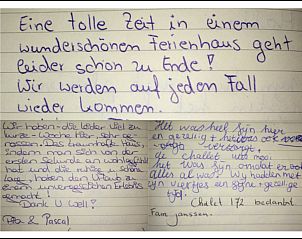 Eine tolle Zeit in einem
wunderschönen Ferienhaus geht
leider schon zu Ende!
Wir werden auf jeden Fall
wieder kommen.
Wir haben die leider viel zu
kurze Woche hier, sehr ge-
nossen. Das traumhafte Haus,
indem man sich von der
ersten Sekunde an wohlgefühlt
hat und die ruhige u. schöne
haben den Urlaub zu
einem unvergesslichen Erlebnis
gemacht!
Dank U well!
& Pascal
Het was heel fijn hier
en gezellig
verzorgd.
je challet was mooi.
het was fijn omdat er
Alles al was) Wij hadden met
zijn viertjes een fijne + gezellige
tijd.
Chalet 172 bedankt
Fam janssen.